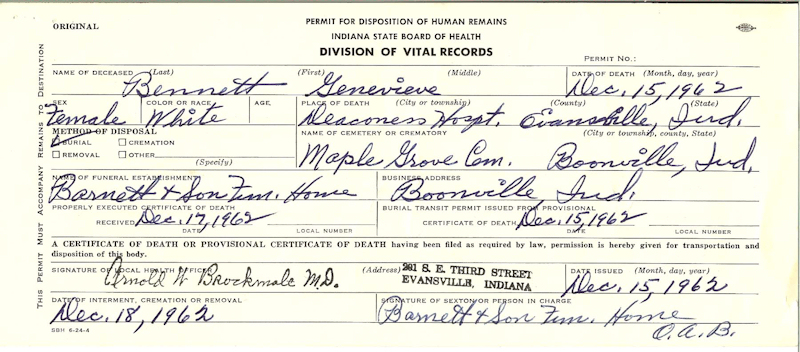 ORIGINAL
PERMIT FOR DISPOSITION OF HUMAN REMAINS
INDIANA STATE BOARD OF HEALTH
DIVISION OF VITAL RECORDS
PERMIT NO.:
THIS PERMIT MUST ACCOMPANY REMAINS TO DESTINATION
NAME OF DECEASED (Last) (First) (Middle) DATE OF DEATH (Month, day, year)
Bennett Genevieve Dec. 15, 1962
SEX COLOR OR RACE AGE PLACE OF DEATH (City or township) (County) (State)
Female White Deaconess Hospt. Evansville, Ind.
METHOD OF DISPOSAL NAME OF CEMETERY OR CREMATORY (City or township, county, State)
BURIAL CREMATION
REMOVAL OTHER
(Specify)
Maple Grove Cem. Boonville, Ind.
NAME OF FUNERAL ESTABLISHMENT BUSINESS ADDRESS
Barnett & Son Fun. Home Boonville, Ind.
PROPERLY EXECUTED CERTIFICATE OF DEATH BURIAL TRANSIT PERMIT ISSUED FROM PROVISIONAL
RECEIVED Dec. 17, 1962 CERTIFICATE OF DEATH Dec. 15, 1962
DATE LOCAL NUMBER DATE LOCAL NUMBER
A CERTIFICATE OF DEATH OR PROVISIONAL CERTIFICATE OF DEATH having been filed as required by law, permission is hereby given for transportation and
disposition of this body.
SIGNATURE OF LOCAL HEALTH OFFICER (Address) 201 S. E. THIRD STREET DATE ISSUED (Month, day, year)
Arnold W Brockmole M.D. EVANSVILLE, INDIANA Dec. 15, 1962
DATE OF INTERMENT, CREMATION OR REMOVAL SIGNATURE OF SEXTON OR PERSON IN CHARGE
Dec. 18, 1962 Barnett & Son Fun. Home
O.A.B.
SBH 6-24-4